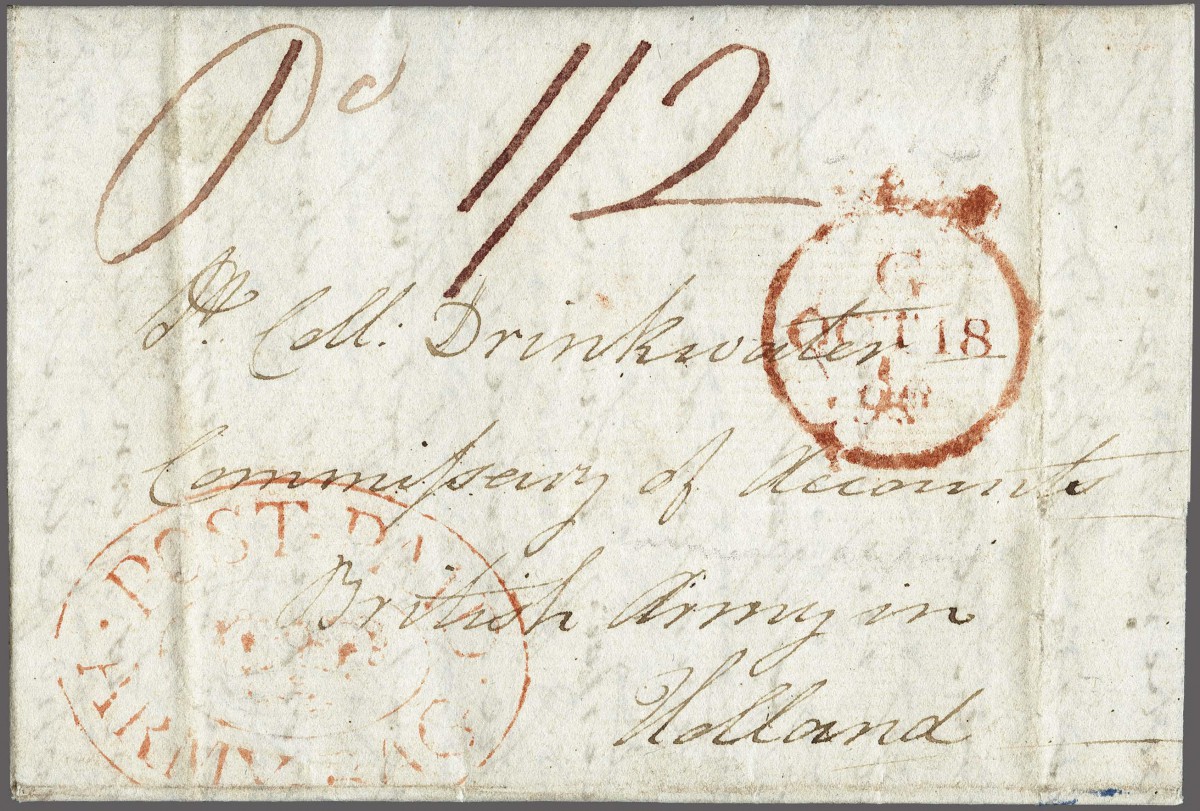 Pd 1/2
Lt. Coll: Drinkwater
Commissary of Accounts
British Army in
Holland
G
OCT 18
POST PAID
ARMY BAG